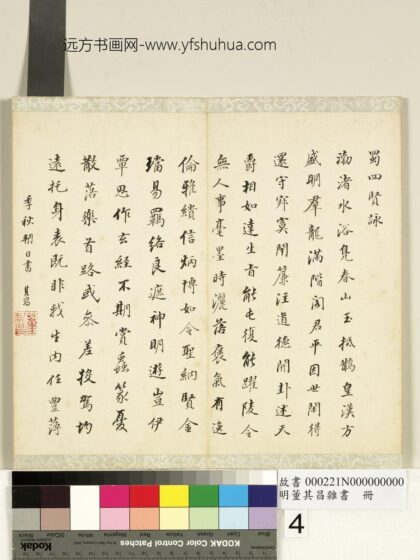 远方书画网-www.yfshuhua.com
蜀四賢詠
渤渚水浴凫春山玉抵鵲皇漢方
盛明羣龍滿階閣君平因世閑得
還守寂寞閉簾注道德開卦述天
爵相如達生旨能屯復能躍陵令
無人事毫墨時灑落褒氣有逸
倫雅繢信炳博如令聖納賢金
璫易羈絡良遮神明遊豈伊
覃思作玄經不期賞蟲篆憂
散落樂首路或参差投駕均
遠托身表既非我生內任豐薄
季秋朔日書 其昌
故書 000221N000000000
明董其昌雜書 冊
4
KODAK Color Control Patches
Kodak